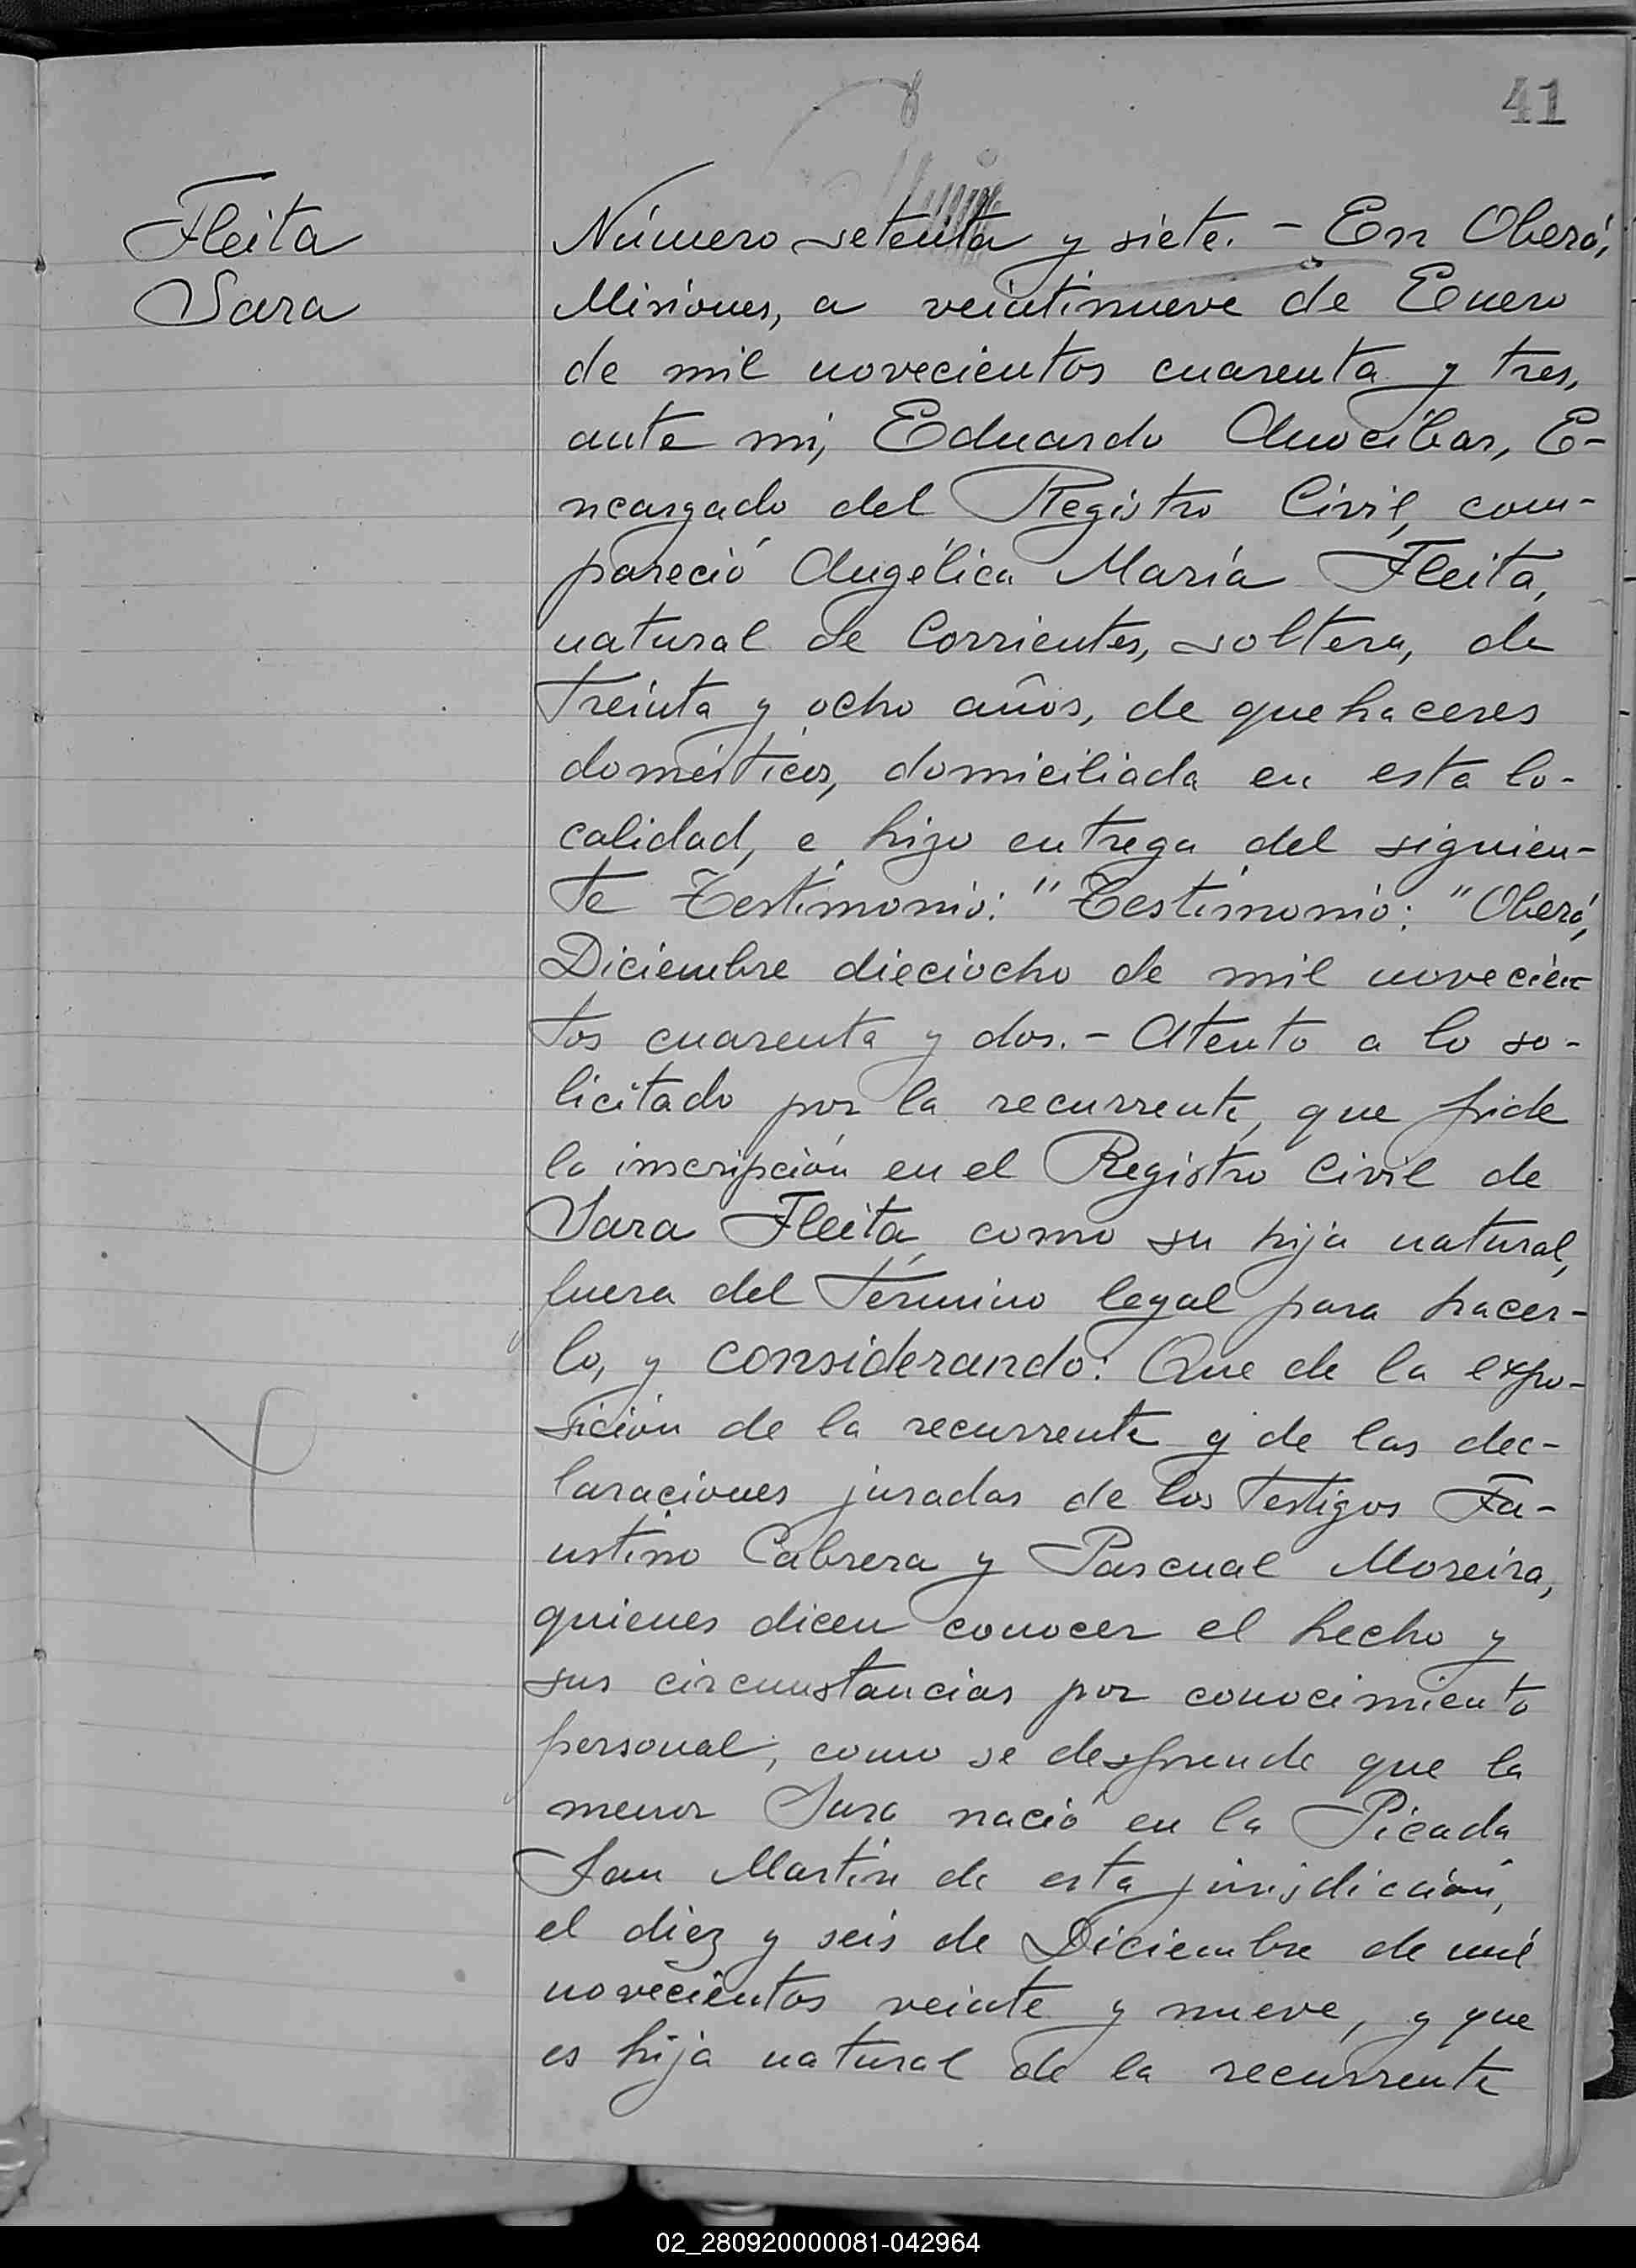 41
Fleita
Sara
Número setenta y siete. - En Oberá,
Misiones, a veintinueve de Enero
de mil novecientos cuarenta y tres,
ante mí, Eduardo Anocibar, E-
ncargado del Registro Civil, com-
pareció Angélica María Fleita,
natural de Corrientes, soltera, de
treinta y ocho años, de quehaceres
domésticos, domiciliada en esta lo-
calidad, e hizo entrega del siguien-
te Testimonio: "Testimonio: "Oberá,
Diciembre dieciocho de mil novecien-
tos cuarenta y dos. - Atento a lo so-
licitado por la recurrente, que pide
la inscripción en el Registro Civil de
Sara Fleita, como su hija natural,
fuera del término legal para hacer-
lo, y considerando: Que de la expo-
sición de la recurrente y de las dec-
laraciones juradas de los testigos Fa-
ustino Cabrera y Pascual Moreira,
quienes dicen conocer el hecho y
sus circunstancias por conocimiento
personal, como se desprende que la
menor Sara nació en la Picada
San Martín de esta jurisdicción,
el diez y seis de Diciembre de mil
novecientos veinte y nueve, y que
es hija natural de la recurrente
02_280920000081-042964